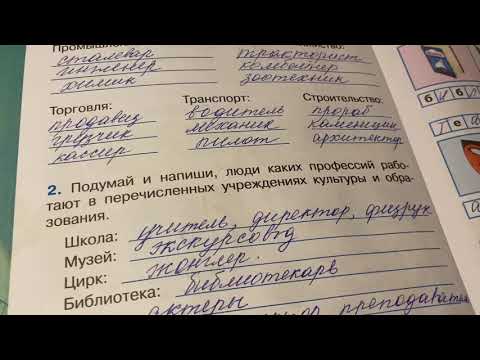 Промышле
сталевар
инженер
химик
тракторист
комбайнер
зоотехник
Торговля:
продавец
грузчик
кассир
Транспорт:
водитель
механик
пилот
Строительство:
прораб
каменщик
архитектор
2. Подумай и напиши, люди каких профессий рабо-
тают в перечисленных учреждениях культуры и обра-
зования.
Школа: учитель, директор, физрук
Музей: экскурсовод
Цирк: жонглер.
Библиотека: библиотекарь
актеры
преподаватель